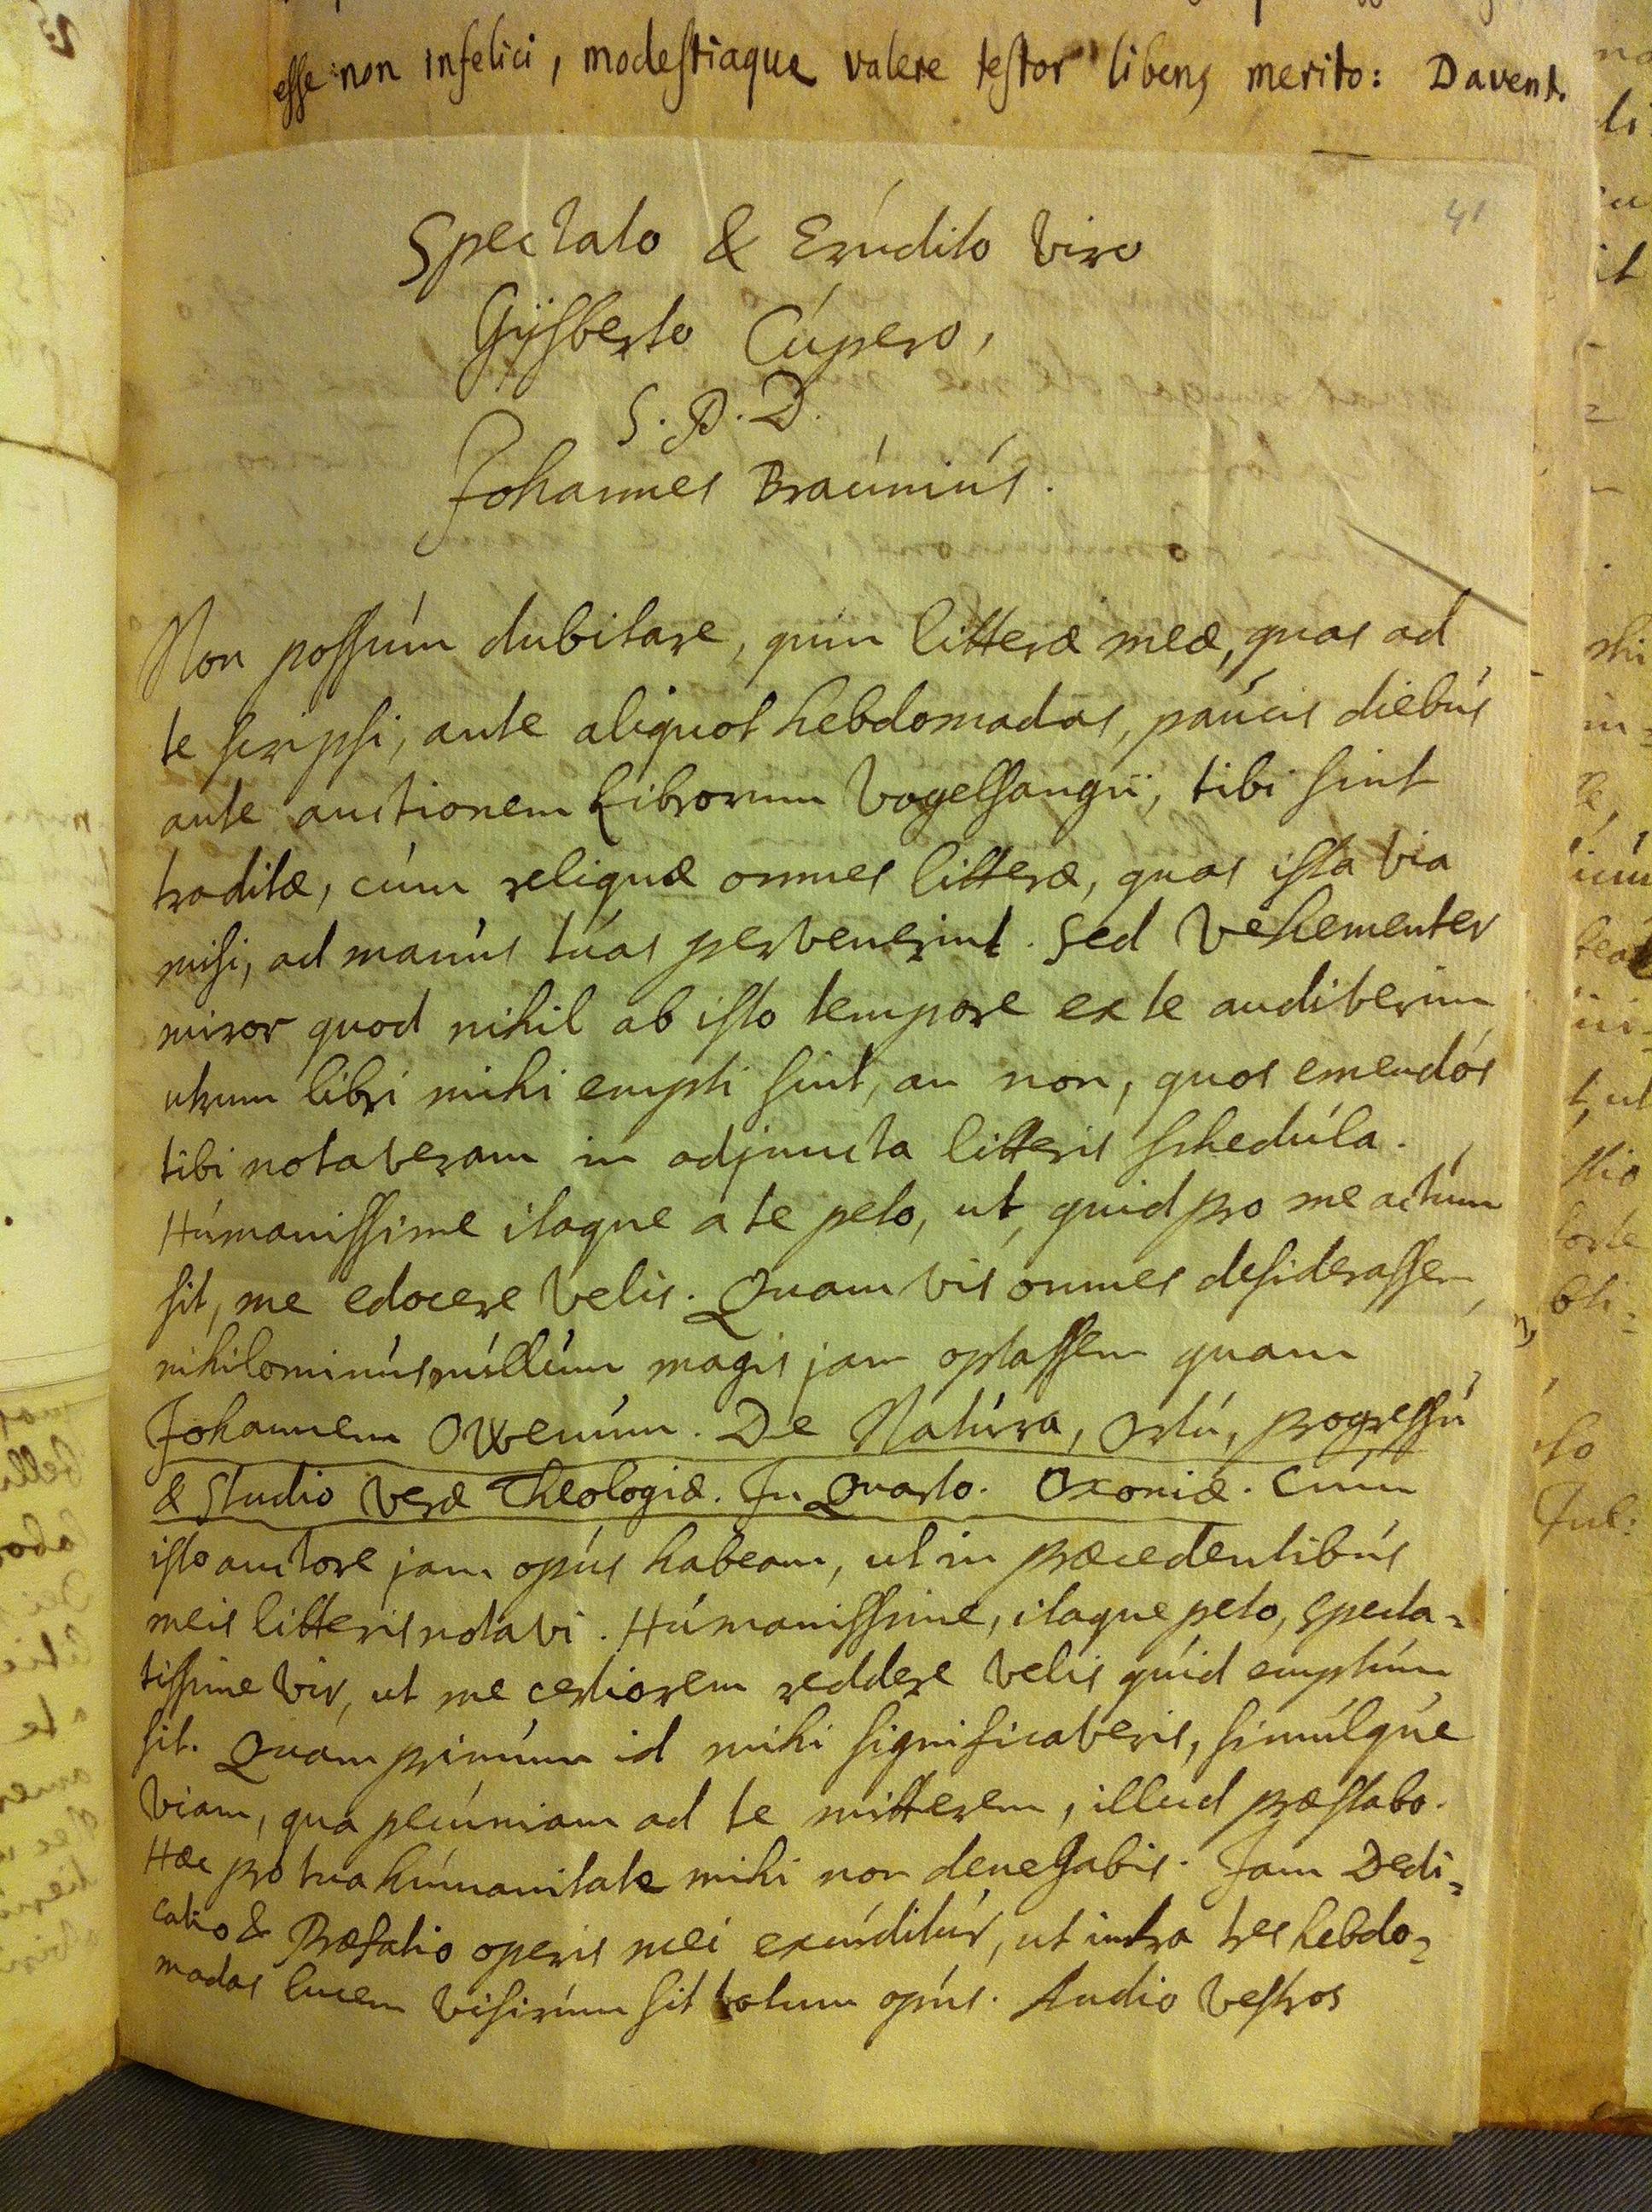 esse non infelici, modestiaque valere testor libens merito: Davent.
41
Spectato & Erúdito Viro
Gÿsberto Cúpero,
S. P. D.
Johannes Braúniús.
Non possúm dubitare, quin litteræ meæ, quas ad
te scripsi, ante aliquot hebdomadas, paúcis diebús
ante auctionem Librorum Vogelsangii, tibi sint
traditæ, cúm reliquæ omnes litteræ, quas ista via
misi, ad manús túas pervenerint. Sed Vehementer
miror quod nihil ab isto tempore ex te audiverim
utrum libri mihi empti sint, an non, quos emendós
tibi notaveram in adjuncta litteris schedúla.
Húmanissime itaque a te peto, ut, quid pro me actúm
sit, me edocere Velis. Quam vis omnes desiderassem,
nihilominús núllúm magis jam optassem quam
Johannem Owenúm. De Natúra, Ortú, progressú
& Studio Veræ Theologiæ. In Quarto. Oxoniæ. Cúm
isto auctore jam opús habeam, ut in præcedentibús
meis litteris notavi. Húmanissime, itaque peto, specta=
tissime Vir, ut me certiorem reddere Velis qúid emptúm
sit. Quam primúm id mihi significaveris, simúlqúe
Viam, qua pecúniam ad te mitterem, illud præstabo.
Hæc pro tua húmanitate mihi non denegabis. Jam Dedi=
catio & Præfatio operis mei excúditúr, ut intra tres hebdo=
madas lucem visúrúm sit totum opús. Audio Vestros